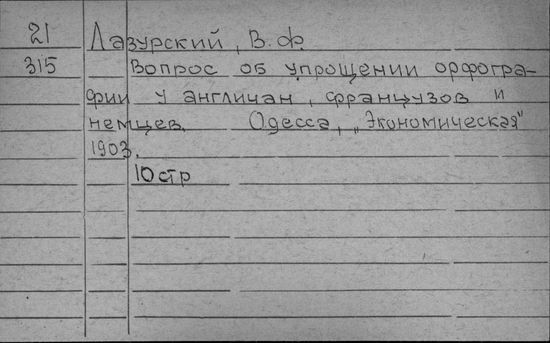 21 Лазурский, В. Ф.
315 Вопрос об упрощении орфогра-
фии у англичан, французов и
немцев. Одесса, „Экономическая"
1903.
10 стр